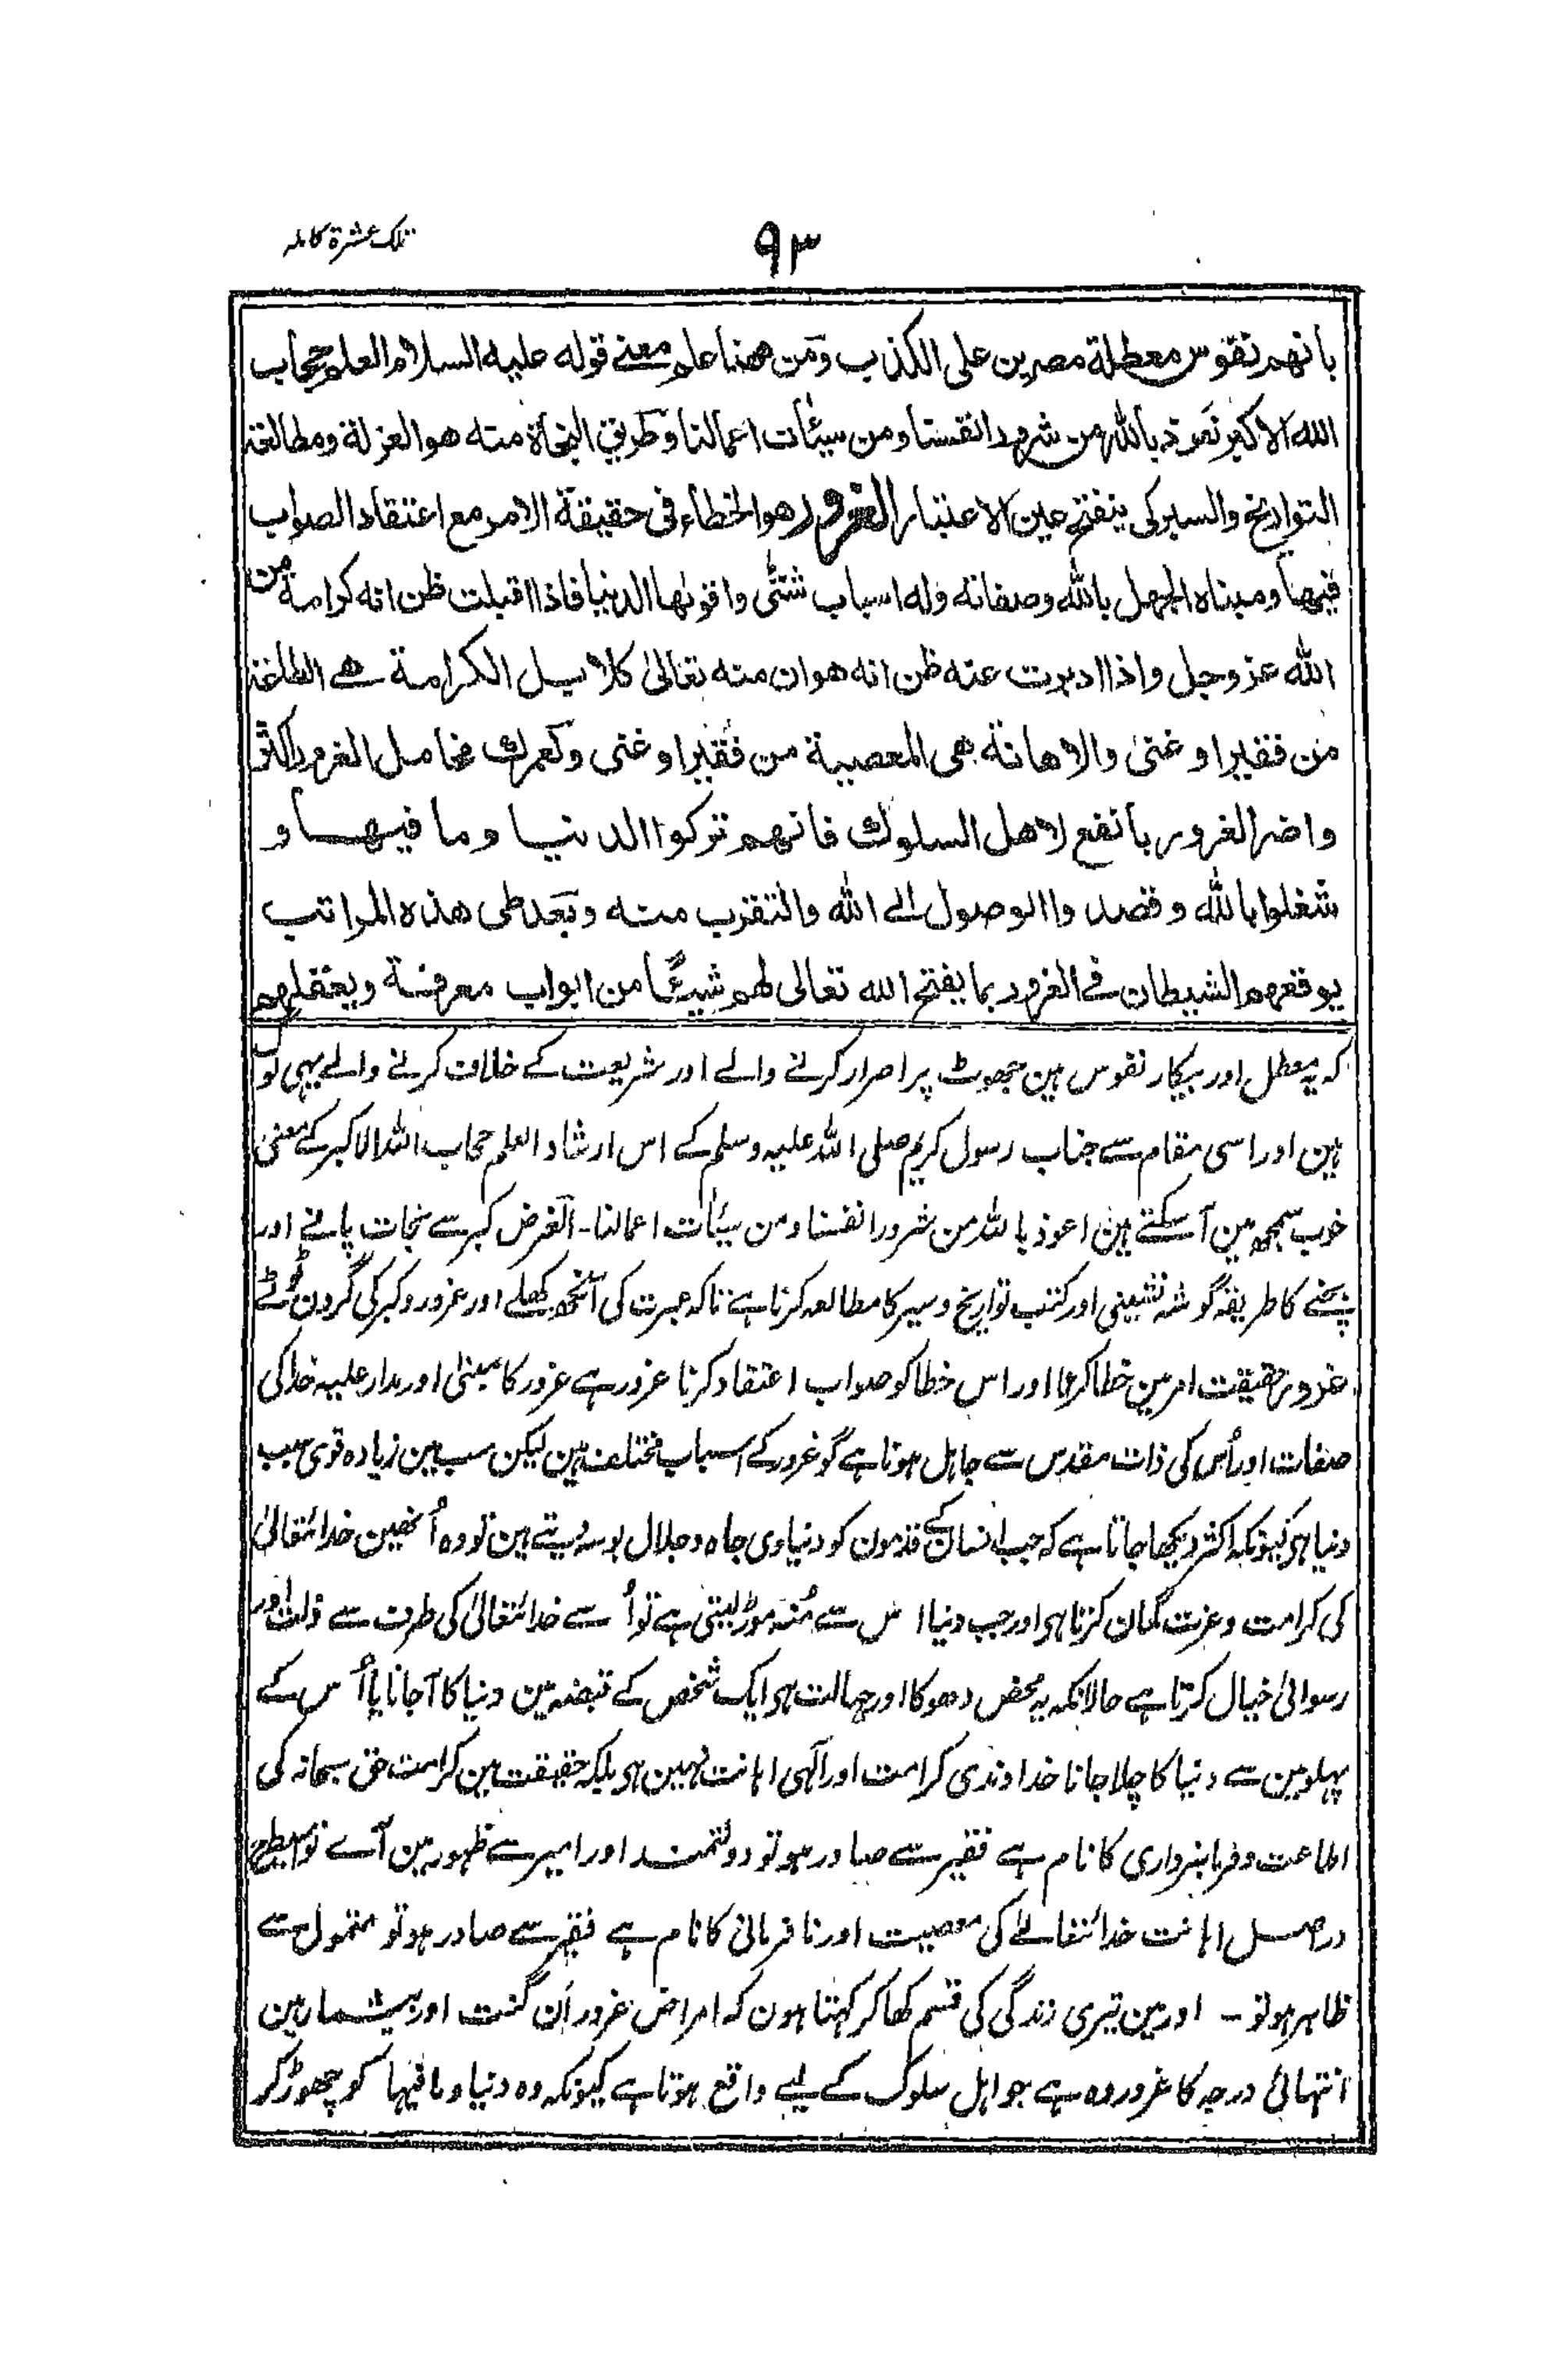 تلک عشرة کامله
٩٣
بانهم نفوس معطلة مصرين على الكذب ومن ههنا علم معنے قوله عليه السلام العلم حجاب
الله الاكبر نعوذ بالله من شرور انفسنا ومن سيئات اعمالنا وطريق النجاة منه هو العزلة ومطالعة
التواريخ والسير كی ينفتح عين الاعتبار الغرور هو الخطاء فی حقيقة الامر مع اعتقاد الصواب
فيها ومبناه الجهل بالله وصفاته وله اسباب شتّٰى واقوٰها الدنيا فاذا اقبلت ظن انه كرامة من
الله عز وجل واذا ادبرت عنه ظن انه هوان منه تعالىٰ كلا بل الكرامة هے الطاعة
من فقير او غنىٰ والاهانة هی المعصية من فقير او غنی ولعمرك الغرور اكثر
واضر الغرور بانفع لاهل السلوك فانهم تركوا الدنيا وما فيها و
شغلوا بالله وقصدوا الوصول الے الله والتقرب منه وبعد طی هذه المراتب
يوقعهم الشيطان فے الغرور بما يفتح الله تعالى لهم شيئًا من ابواب معرفة
کہ یہ معطل اور بیکار نفوس ہین جھوٹ پر اصرار کرنے والے اور شریعت کے خلاف کرنے والے یہی لوگ
ہین اور اسی مقام سے جناب رسول کریم صلی اللہ علیہ وسلم کے اس ارشاد العلم حجاب اللہ الاکبر کے معنیٰ
خوب سمجھ مین آسکتے ہین اعوذ باللہ من شرور انفسنا ومن سیئات اعمالنا۔ الغرض کبر سے نجات پانے اور
بچنے کا طریقہ گوشہ نشینی اور کتب تواریخ و سیر کا مطالعہ کرنا ہے تاکہ عبرت کی آنکھ کھلے اور غرور و کبر کی گردن ٹوٹے
غرور حقیقت امر مین خطا کرنا اور اس خطا کو صواب اعتقاد کرنا غرور ہے غرور کا مبنیٰ اور مدار علیہ خدا کی
صفات اور اُس کی ذات مقدس سے جاہل ہونا ہے گو غرور کے اسباب مختلف ہین لیکن سب مین زیادہ قوی سبب
دنیا ہی کیونکہ اکثر دیکھا جاتا ہے کہ جب انسان کے قدمون کو دنیاوی جاہ و جلال بوسہ دیتے ہین تو وہ اُنھین خدائتعالیٰ
کی کرامت و عزت گمان کرتا ہی اور جب دنیا اس سے مُنہ موڑ لیتی ہے تو اُسے خدائتعالیٰ کی طرف سے ذلت اور
رسوائی خیال کرتا ہے حالانکہ یہ محض دھوکا اور جہالت ہی ایک شخص کے قبضہ مین دنیا کا آجانا یا اُس کے
پہلو مین سے دنیا کا چلا جانا خداوندی کرامت اور الٰہی اہانت نہین ہی بلکہ حقیقت مین کرامت حق سبحانہ کی
اطاعت و فرمانبرداری کا نام ہے فقیر سے صادر ہو تو دولتمند اور امیر سے ظہور مین آئے تو اسیطرح
دراصل اہانت خدائتعالےٰ کی معصیت اور نافرمانی کا نام ہے فقیر سے صادر ہو تو متمول سے
ظاہر ہو تو ۔ اور مین تیری زندگی کی قسم کھا کر کہتا ہون کہ امراض غرور اَن گنت اور بیشمار ہین
انتہائی درجہ کا غرور وہ ہے جو اہل سلوک کے لیے واقع ہوتا ہے کیونکہ وہ دنیا و ما فیہا کو چھوڑ کر